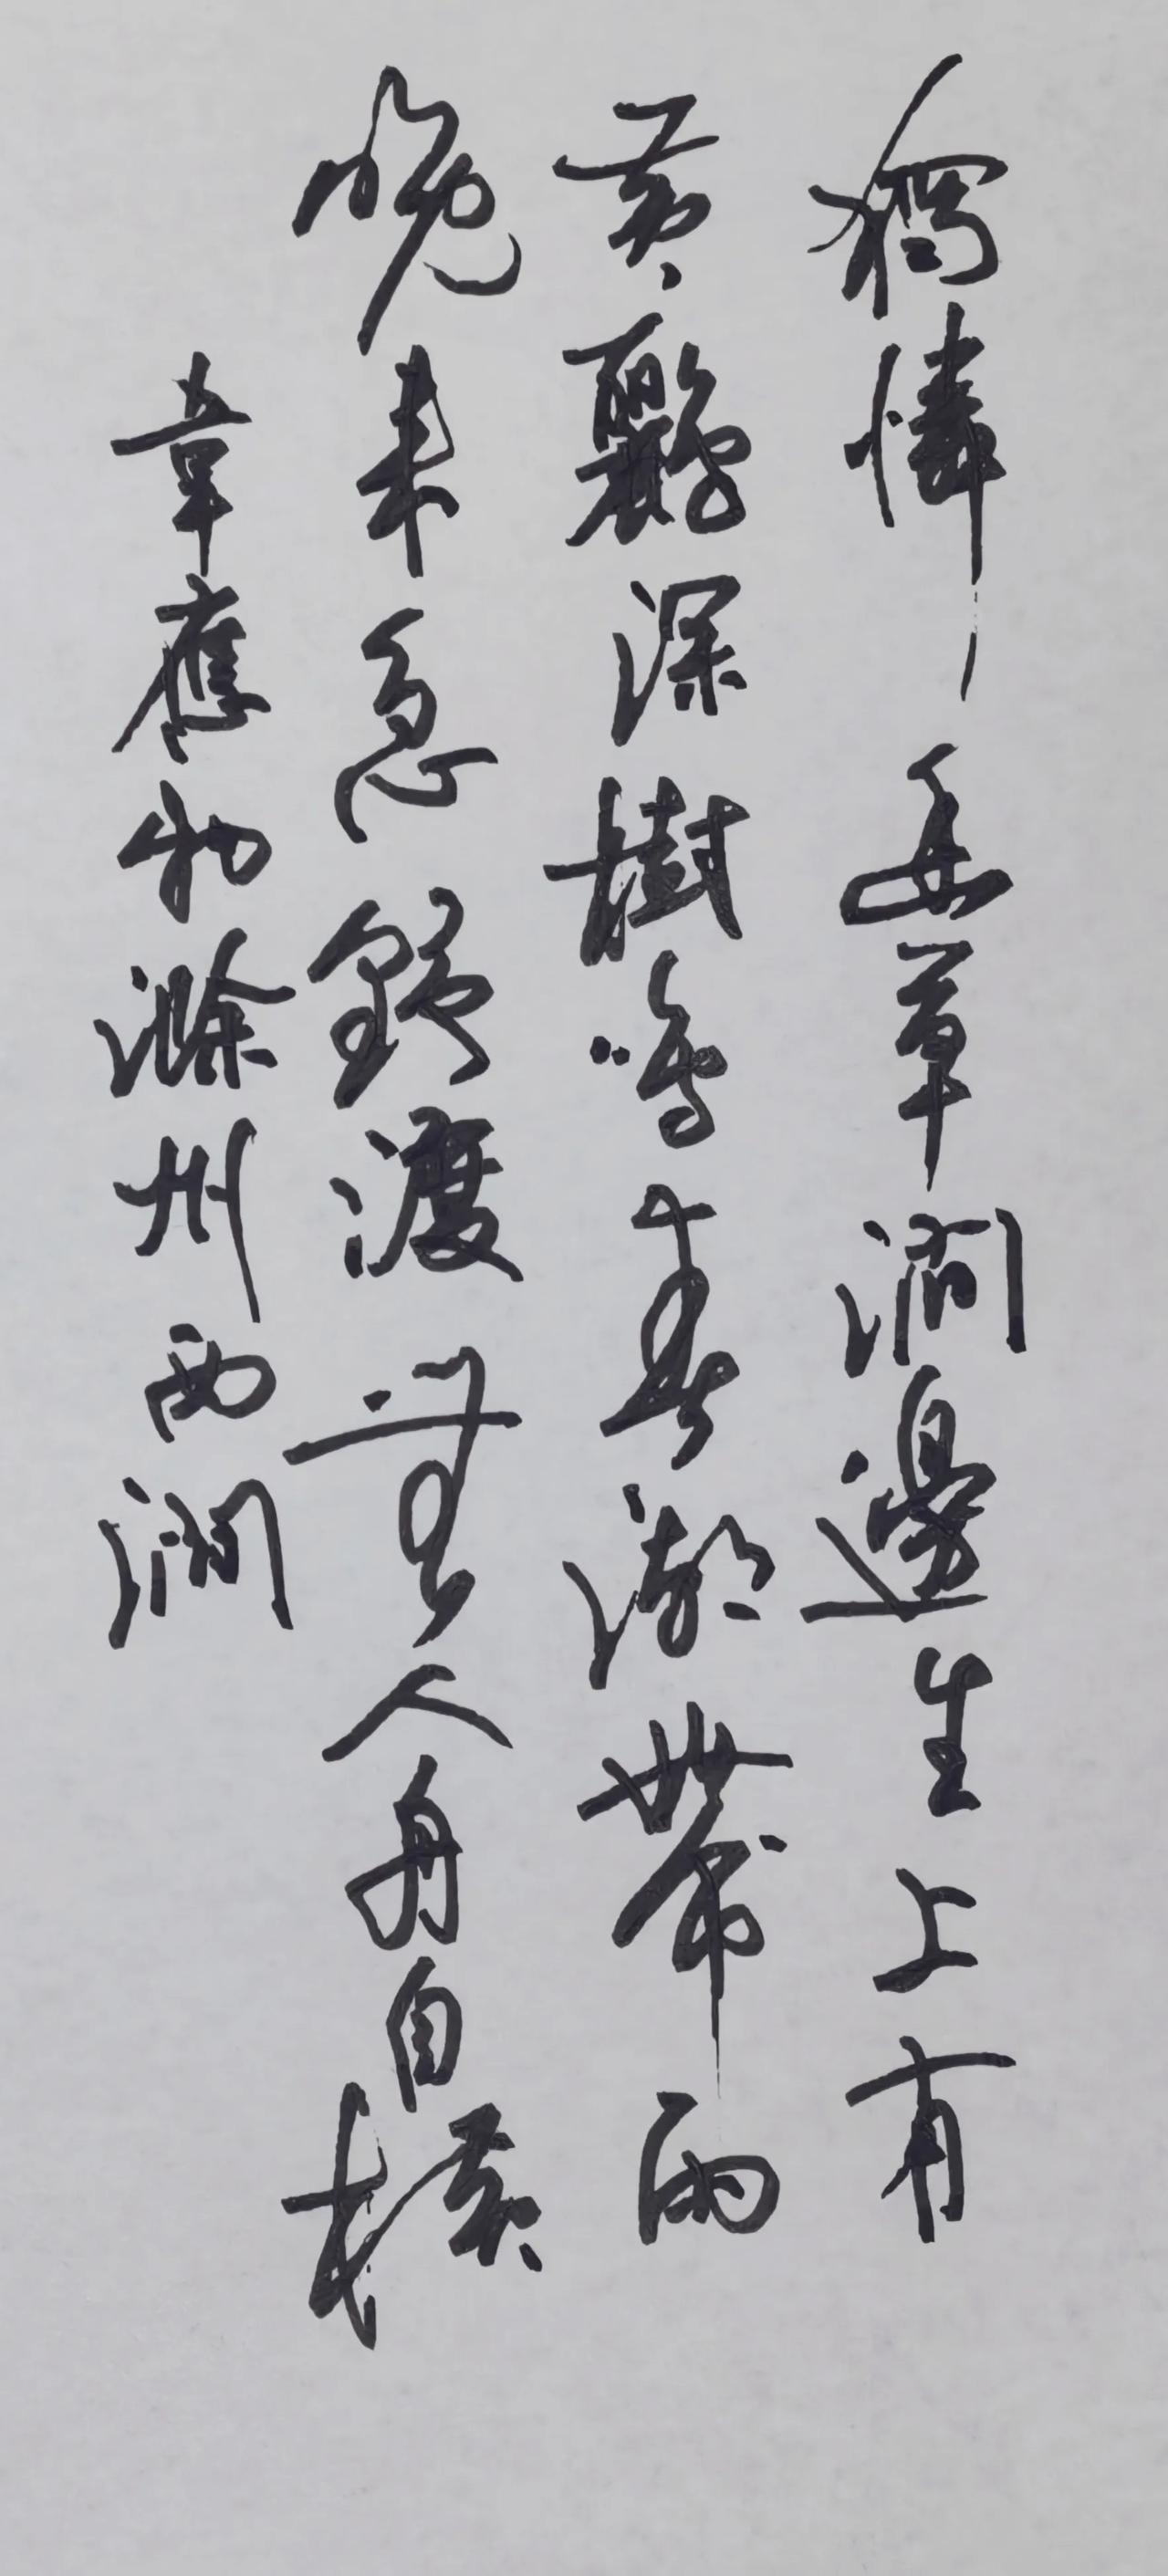 獨憐幽草澗邊生上有
黃鸝深樹鳴春潮帶雨
晚來急野渡無人舟自橫
韋應物滁州西澗